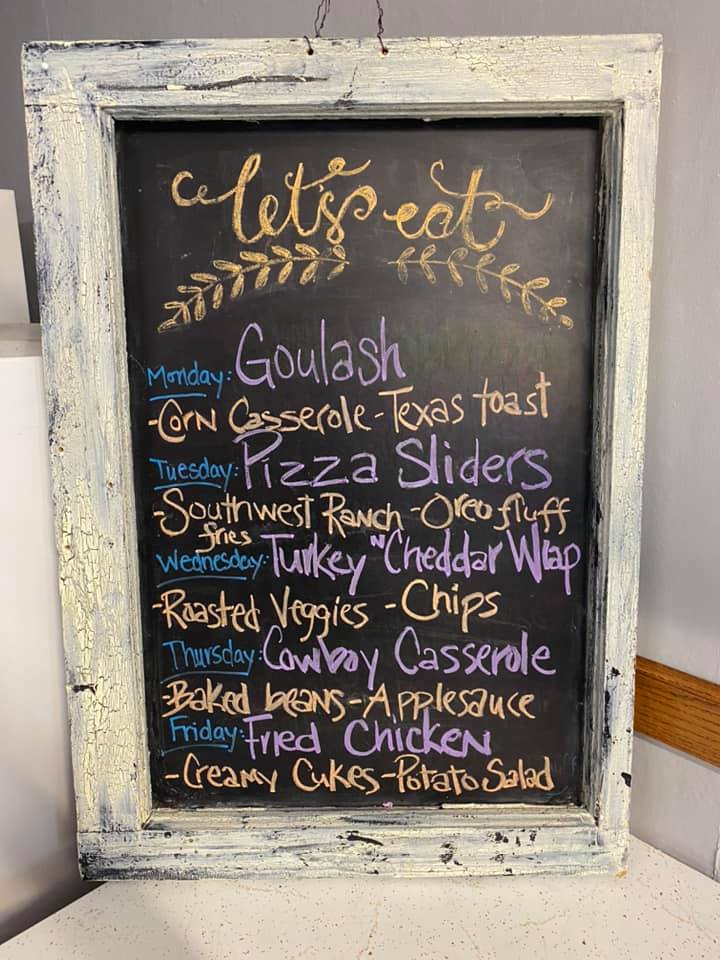 let's eat
Monday: Goulash
-Corn Casserole -Texas toast
Tuesday: Pizza Sliders
-Southwest Ranch -Oreo fluff
fries
Wednesday: Turkey "n" Cheddar Wrap
-Roasted Veggies -Chips
Thursday: Cowboy Casserole
-Baked beans -Applesauce
Friday: Fried Chicken
-Creamy Cukes -Potato Salad